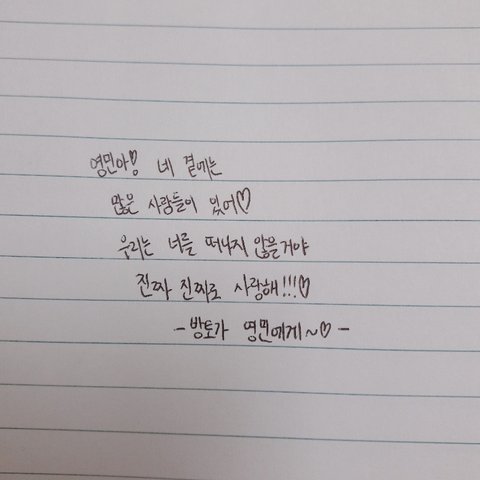 영민아♡ 네 곁에는
많은 사람들이 있어♡
우리는 너를 떠나지 않을거야
진짜 진찌로 사랑해!!!♡
-방토가 영민에게~♡-